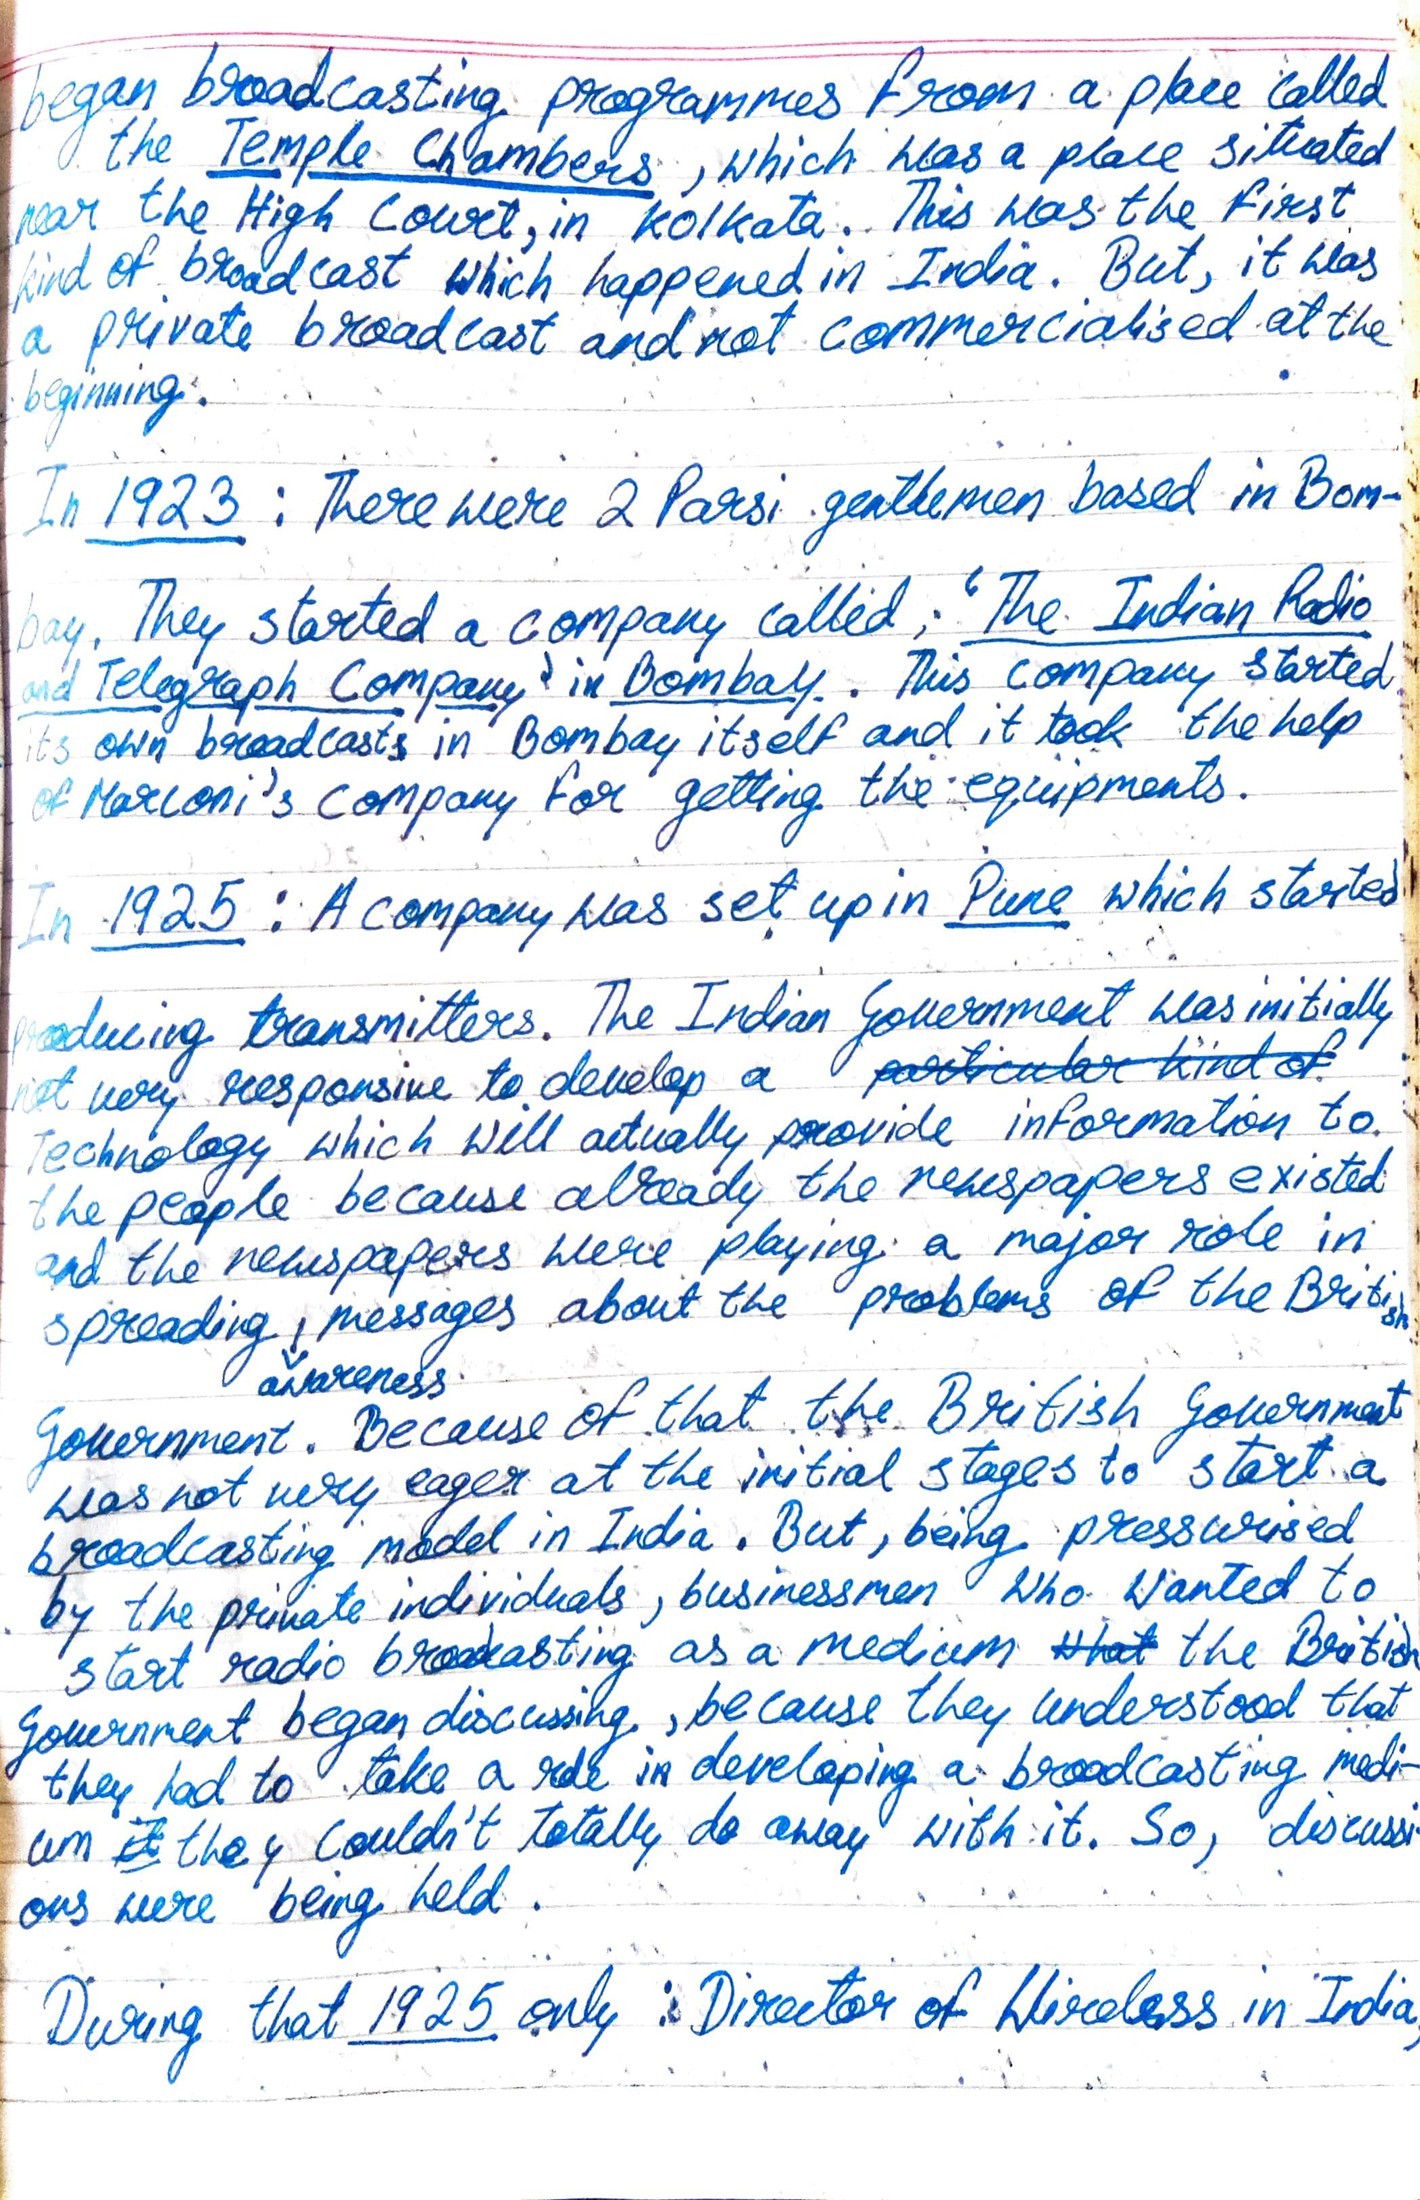 began broadcasting programmes from a place called
the Temple Chambers, which was a place situated
near the High Court, in Kolkata. This was the first
kind of broadcast which happened in India. But, it was
a private broadcast and not commercialised at the
beginning.
In 1923 : There were 2 Parsi gentlemen based in Bom-
bay. They started a company called, "The Indian Radio
and Telegraph Company" in Bombay. This company started
its own broadcasts in Bombay itself and it took the help
of Marconi's company for getting the equipments.
In 1925 : A company was set up in Pune which started
producing transmitters. The Indian Government was initially
not very responsive to develop a particular kind of
Technology which will actually provide information to
the people because already the newspapers existed
and the newspapers were playing a major role in
spreading, messages about the problems of the British
awareness
Government. Because of that the British Government
was not very eager at the initial stages to start a
broadcasting model in India. But, being pressurised
by the private individuals, businessmen who wanted to
start radio broadcasting as a medium that the British
Government began discussing, because they understood that
they had to take a role in developing a broadcasting medi-
um it they couldn't totally do away with it. So, discussi-
ons were being held.
During that 1925 only : Director of Wireless in India,